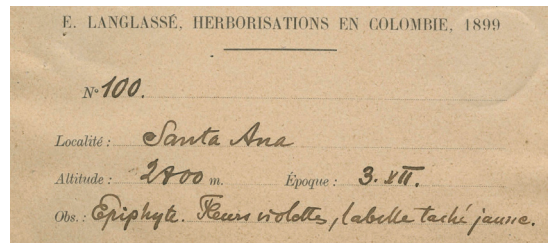 E. LANGLASSÉ, HERBORISATIONS EN COLOMBIE, 1899
N° 100.
Localité : Santa Ana
Altitude : m. Époque : 3. XII.
Obs. : Epiphyte. Fleurs violettes, labelle taché jaune.